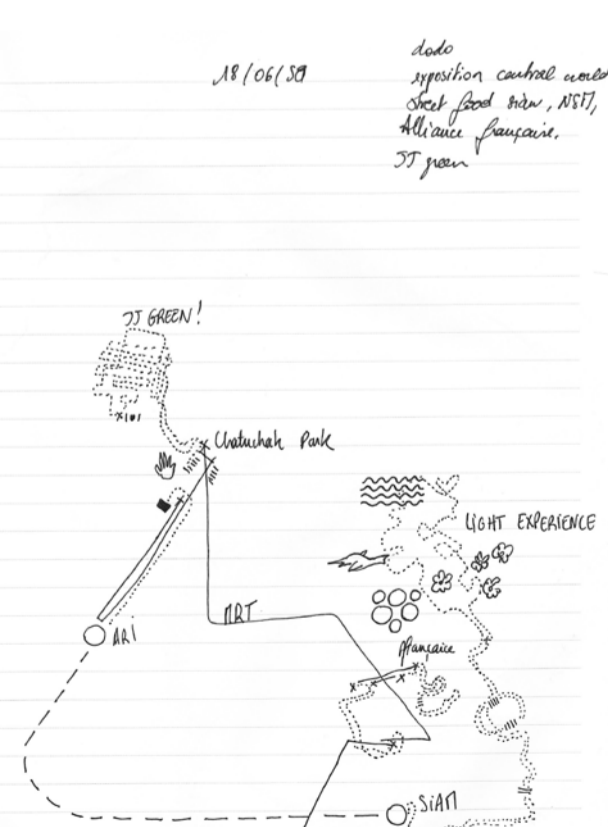 18/06/
dodo
exposition central world
street food siam,
Alliance française.
JJ green
JJ GREEN!
Chatuchak Park
LIGHT EXPERIENCE
MRT
ARI
SIAM